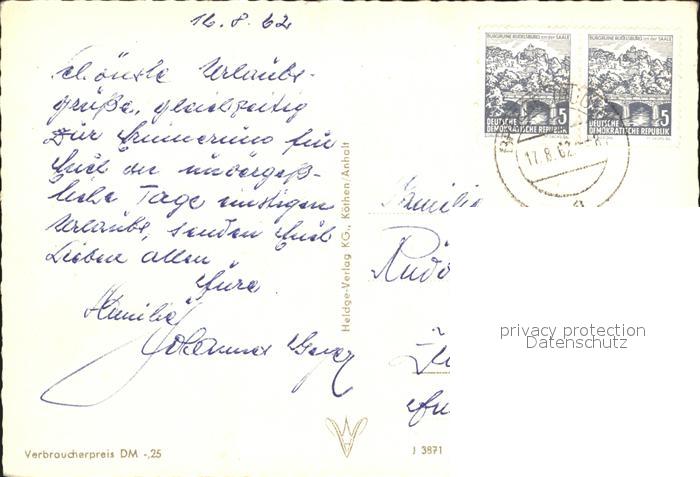 16. 8. 62
Schönste Urlaubs-
grüße, gleichzeitig
zur Erinnerung für
Euch an unvergeß-
liche Tage einstigen
Urlaubs, senden Euch
Lieben allen
Eure
Familie
Johannes
Familie
Verbraucherpreis DM -,25
Heldge-Verlag KG., Köthen/Anhalt
J 3871
BURGRUINE RUDELSBURG an der SAALE
5
DEUTSCHE
DEMOKRATISCHE REPUBLIK
BURGRUINE RUDELSBURG an der SAALE
5
DEUTSCHE
DEMOKRATISCHE REPUBLIK
17.8.62
privacy protection
Datenschutz